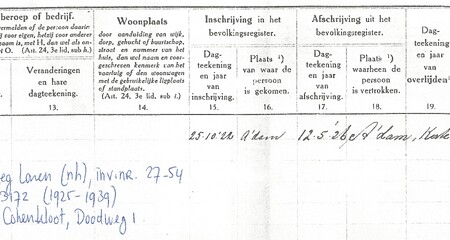 beroep of bedrijf.
vermelden of de persoon daarin
voor eigen, hetzij voor anderer
naam is, met H, dan wel als on-
O. (Art. 24, 3e lid, sub h.)
Veranderingen
en hare
dagteekening.
13.
Woonplaats
door aanduiding van wijk,
dorp, gehucht of buurtschap,
straat en nummer van het
huis, dan wel naam en voor-
geschreven kenmerk van het
vaartuig of den woonwagen
met de gebruikelijke ligplaats
of standplaats.
(Art. 24, 3e lid, sub i.)
14.
Inschrijving in het
bevolkingsregister.
Dag-
teekening
en jaar
van
inschrijving.
15.
Plaats ¹)
van waar de
persoon
is gekomen.
16.
Afschrijving uit het
bevolkingsregister.
Dag-
teekening
en jaar
van
afschrijving.
17.
Plaats ¹)
waarheen de
persoon
is vertrokken.
18.
Dag-
teekening
en jaar
van
overlijden
19.
25-10-'22 A'dam 12-5-'26 A'dam,
Laren (nh), inv.nr. 27-54
(1925-1939)
Cohenkloot, Doodweg 1